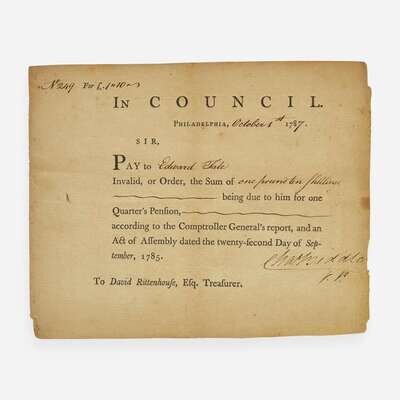 Nº 249 For £.1"10"
IN COUNCIL.
PHILADELPHIA, October 1st 1787.
SIR,
PAY to Edward
Invalid, or Order, the Sum of one pound ten shillings
being due to him for one
Quarter's Pension,
according to the Comptroller General's report, and an
Act of Assembly dated the twenty-second Day of Sep-
tember, 1785.
Cha Biddle
To David Rittenhouse, Esq. Treasurer.